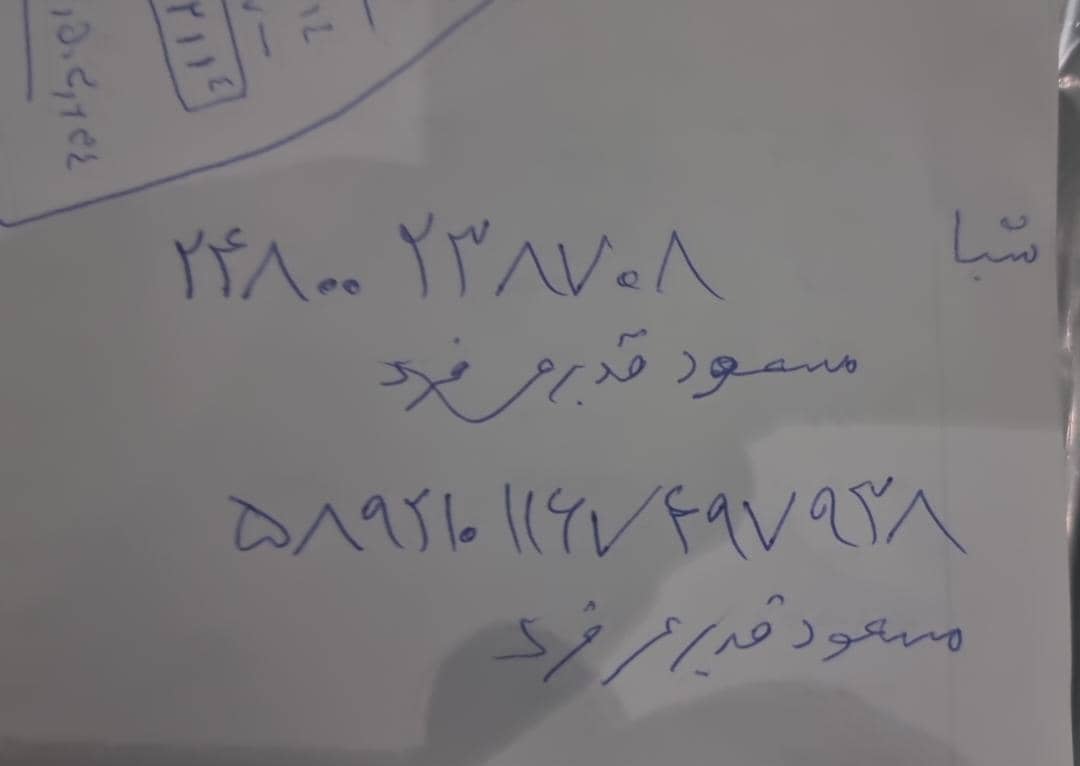 ۲۱۱۴
شبا
۲۴۸۰۰ ۲۳۸۷۰۸
مسعود قدیری فرد
۵۸۹۲۱۰۱۱۶۷۴۹۷۹۳۸
مسعود قدیری فرد